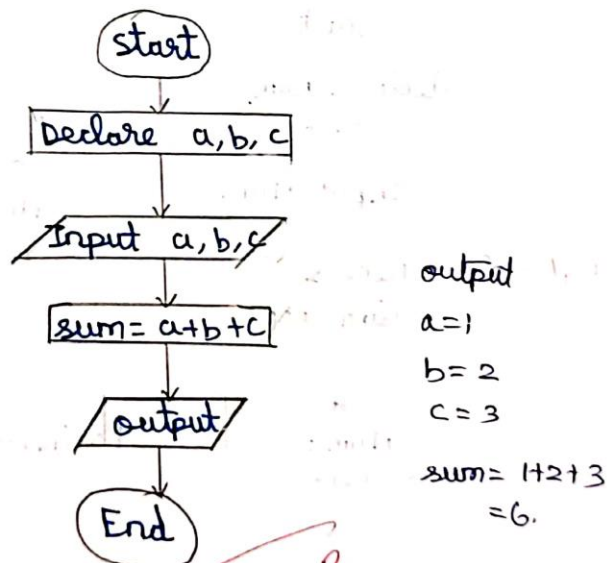 start
Declare a, b, c
Input a, b, c
sum= a+b+c
output
End
output
a=1
b= 2
c= 3
sum= 1+2+3
=6.